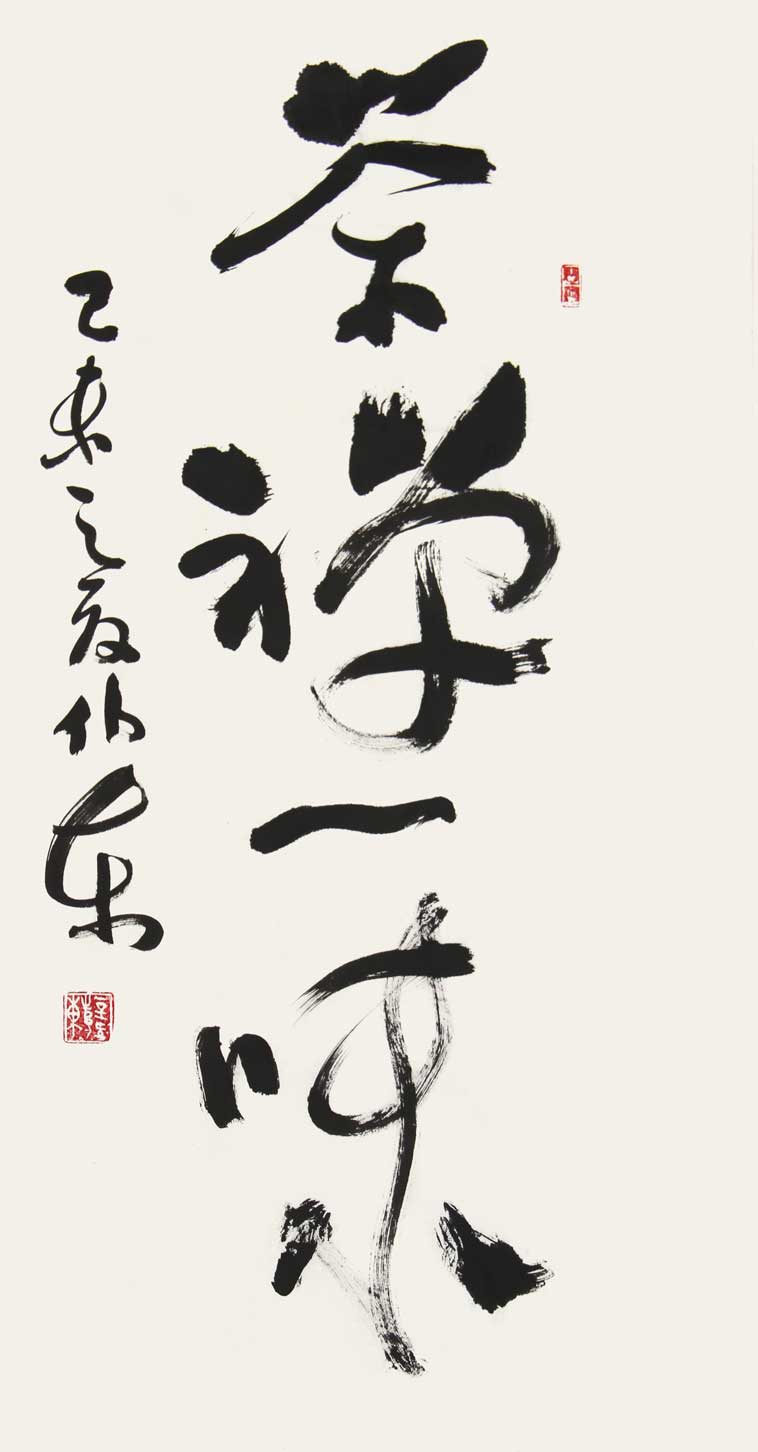 茶禅一味
乙未之夏仆东